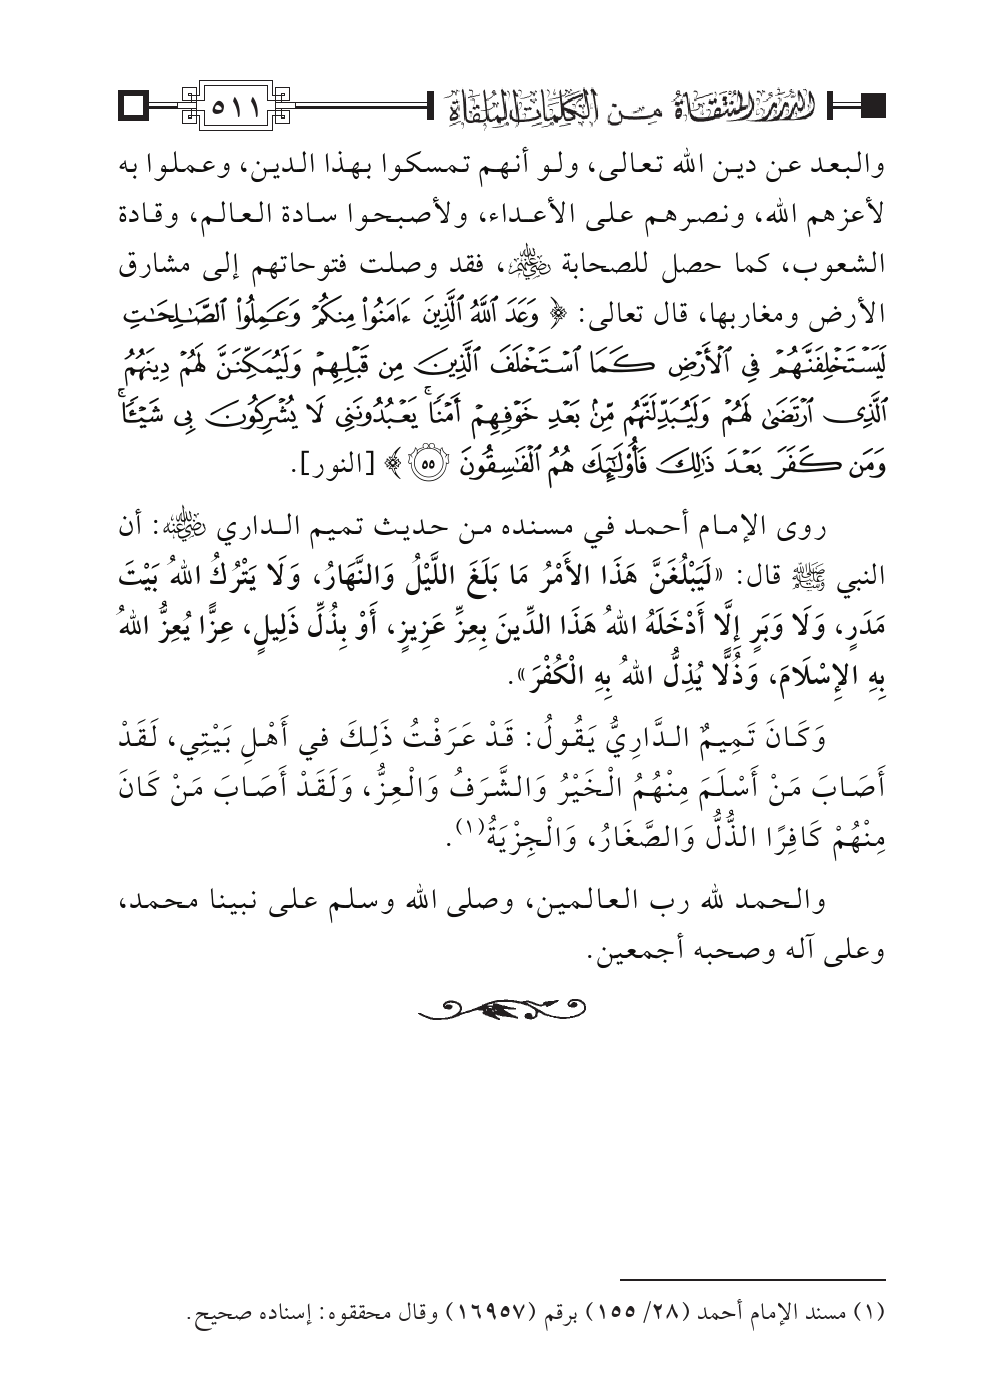 الدرر المنتقاة من الكلمات الملقاة
٥١١
والبعد عن دين الله تعالى، ولو أنهم تمسكوا بهذا الدين، وعملوا به
لأعزهم الله، ونصرهم على الأعداء، ولأصبحوا سادة العالم، وقادة
الشعوب، كما حصل للصحابة رضي الله عنهم، فقد وصلت فتوحاتهم إلى مشارق
الأرض ومغاربها، قال تعالى: ﴿ وَعَدَ ٱللَّهُ ٱلَّذِينَ ءَامَنُوا۟ مِنكُمْ وَعَمِلُوا۟ ٱلصَّـٰلِحَـٰتِ
لَيَسْتَخْلِفَنَّهُمْ فِي ٱلْأَرْضِ كَمَا ٱسْتَخْلَفَ ٱلَّذِينَ مِن قَبْلِهِمْ وَلَيُمَكِّنَنَّ لَهُمْ دِينَهُمُ
ٱلَّذِى ٱرْتَضَىٰ لَهُمْ وَلَيُبَدِّلَنَّهُم مِّنۢ بَعْدِ خَوْفِهِمْ أَمْنًا ۚ يَعْبُدُونَنِى لَا يُشْرِكُونَ بِى شَيْـًٔا ۚ
وَمَن كَفَرَ بَعْدَ ذَٰلِكَ فَأُو۟لَـٰٓئِكَ هُمُ ٱلْفَـٰسِقُونَ ٥٥ ﴾ [النور].
روى الإمام أحمد في مسنده من حديث تميم الداري رضي الله عنه: أن
النبي ﷺ قال: «لَيَبْلُغَنَّ هَذَا الأَمْرُ مَا بَلَغَ اللَّيْلُ وَالنَّهَارُ، وَلَا يَتْرُكُ اللهُ بَيْتَ
مَدَرٍ، وَلَا وَبَرٍ إِلَّا أَدْخَلَهُ اللهُ هَذَا الدِّينَ بِعِزِّ عَزِيزٍ، أَوْ بِذُلِّ ذَلِيلٍ، عِزًّا يُعِزُّ اللهُ
بِهِ الإِسْلَامَ، وَذُلًّا يُذِلُّ اللهُ بِهِ الْكُفْرَ».
وَكَانَ تَمِيمٌ الدَّارِيُّ يَقُولُ: قَدْ عَرَفْتُ ذَلِكَ في أَهْلِ بَيْتِي، لَقَدْ
أَصَابَ مَنْ أَسْلَمَ مِنْهُمُ الْخَيْرُ وَالشَّرَفُ وَالْعِزُّ، وَلَقَدْ أَصَابَ مَنْ كَانَ
مِنْهُمْ كَافِرًا الذُّلُّ وَالصَّغَارُ، وَالْجِزْيَةُ(١).
والحمد لله رب العالمين، وصلى الله وسلم على نبينا محمد،
وعلى آله وصحبه أجمعين.
(١) مسند الإمام أحمد (٢٨/ ١٥٥) برقم (١٦٩٥٧) وقال محققوه: إسناده صحيح.